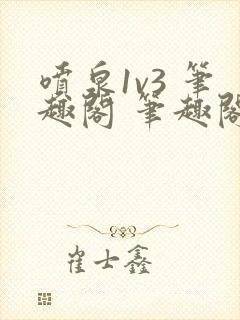 噴泉1v3 筆
趣閣 筆趣閣
崔士鑫